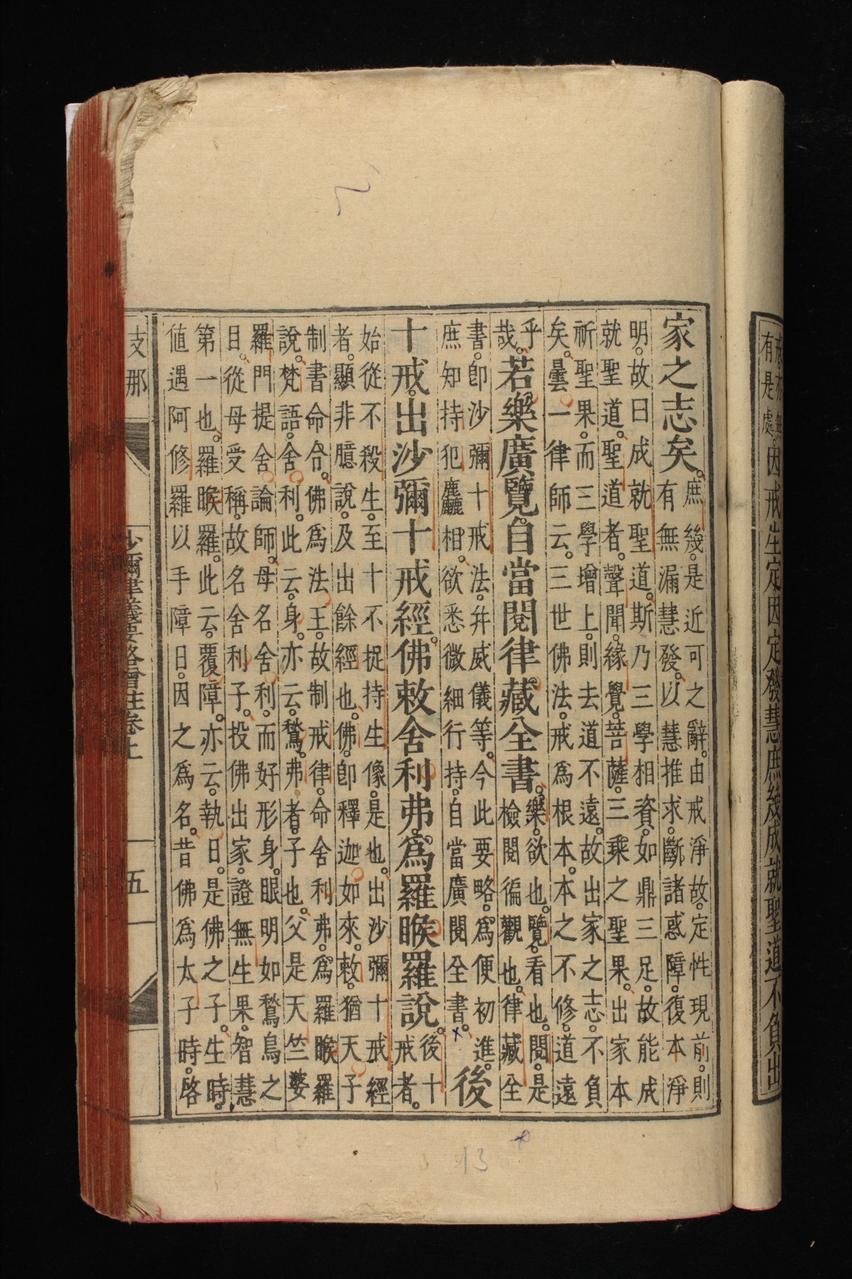 有是處。因戒生定因定發慧庶幾成就聖道不負出
家之志矣。
庶幾。是近可之辭。由戒淨故。定性現前。則
有無漏慧發。以慧推求。斷諸惑障。復本淨
明。故曰成就聖道。斯乃三學相資。如鼎三足。故能成
就聖道。聖道者。聲聞。緣覺。菩薩。三乘之聖果。出家本
祈聖果。而三學增上。則去道不遠。故出家之志。不負
矣。曇一律師云。三世佛法。戒爲根本。本之不修。道遠
乎
哉。
若樂廣覽。自當閱律藏全書。
樂。欲也。覽。看也。閱。是
檢閱徧觀也。律藏全
書。卽沙彌十戒法。幷威儀等。今此要略。爲便初進。
庶知持犯麤相。欲悉微細行持。自當廣閱全書。
後
十戒。出沙彌十戒經。佛敕舍利弗。爲羅睺羅說。
後十
戒者。
始從不殺生。至十不捉持生像。是也。出沙彌十戒經
者。顯非臆說。及出餘經也。佛。卽釋迦如來。敕。猶天子
制書命令。佛爲法王。故制戒律。命舍利弗。爲羅睺羅
說。梵語。舍利。此云。身。亦云。鶖。弗者。子也。父是天竺婆
羅門提舍論師。母名舍利。而好形身。眼明如鶖鳥之
目。從母受稱。故名舍利子。投佛出家。證無生果。智慧
第一也。羅睺羅。此云。覆障。亦云。執日。是佛之子。生時。
値遇阿修羅以手障日。因之爲名。昔佛爲太子時。啓
支那
沙彌律儀要略會註卷上
五
13